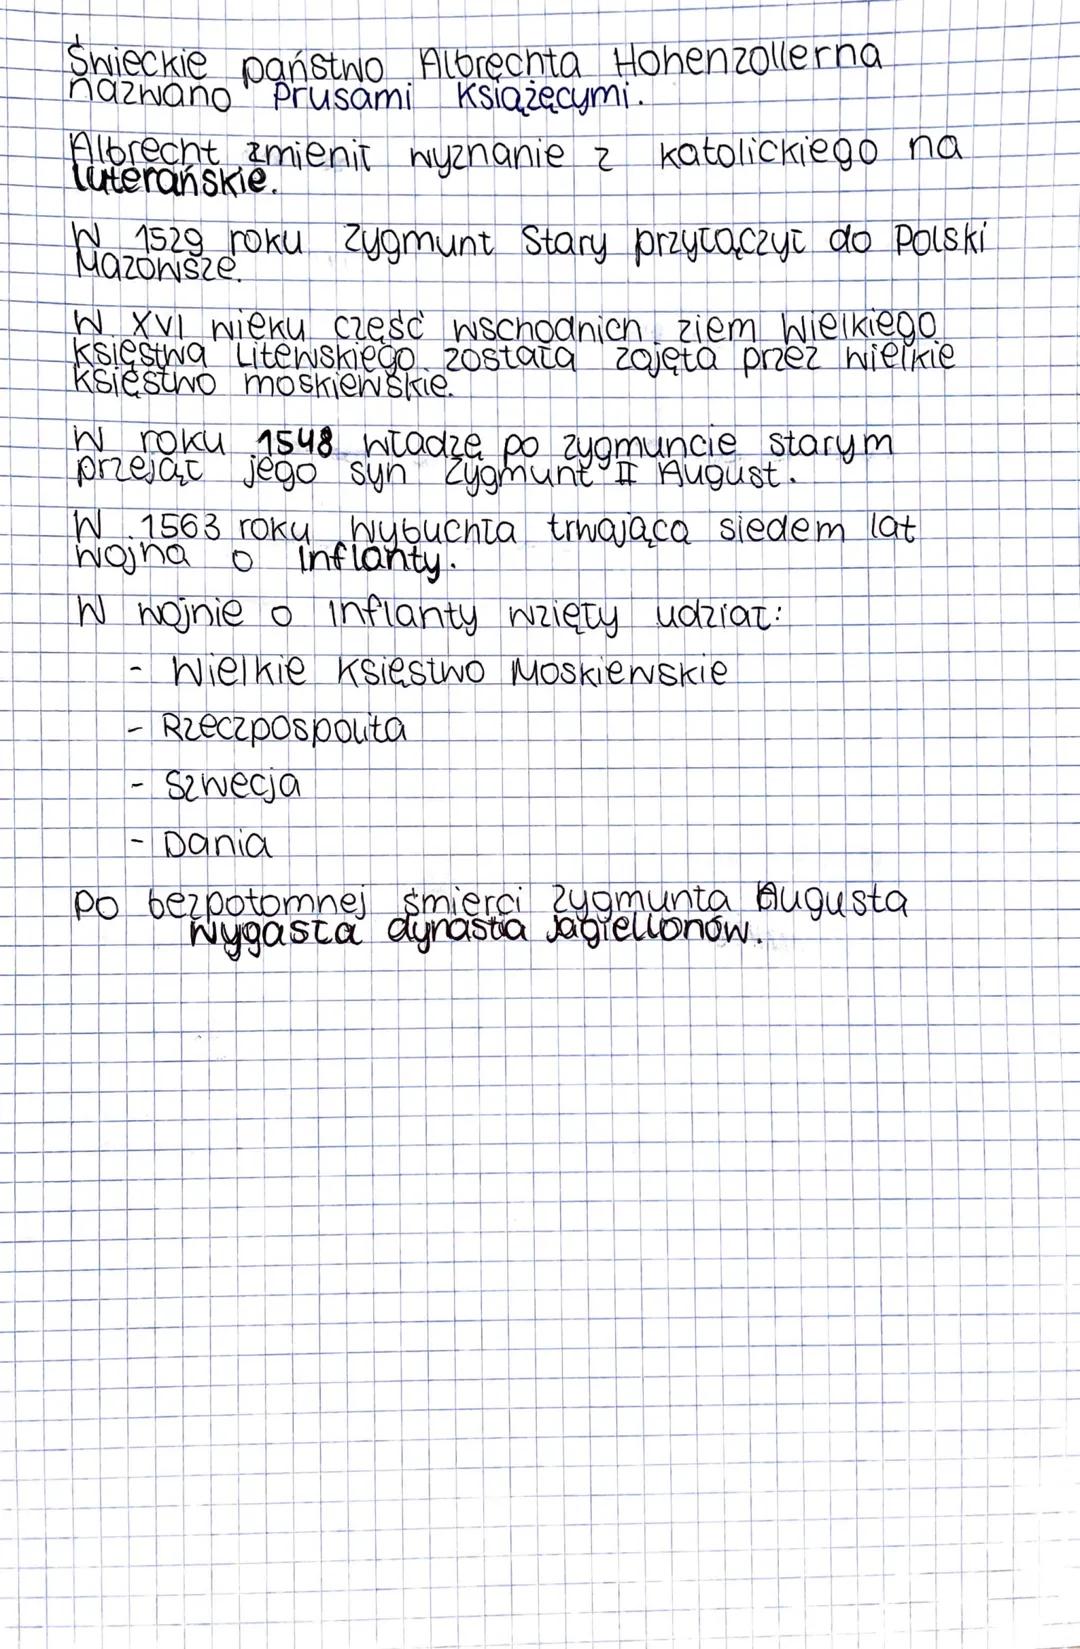 Świeckie państwo Albrechta Hohenzollerna
nazwano Prusami Książęcymi.
Albrecht zmienił wyznanie z katolickiego na
luterańskie.
W 1529 roku Zygmunt Stary przyłączył do Polski
Mazowsze.
W XVI wieku część wschodnich ziem Wielkiego
Księstwa Litewskiego została zajęta przez wielkie
księstwo moskiewskie.
W roku 1548 władzę po zygmuncie starym
przejął jego syn Zygmunt II August.
W 1563 roku wybuchła trwająca siedem lat
wojna o Inflanty.
W wojnie o Inflanty wzięły udział:
- Wielkie Księstwo Moskiewskie
- Rzeczpospolita
- Szwecja
- Dania
Po bezpotomnej śmierci Zygmunta Augusta
wygasła dynastia Jagiellonów.